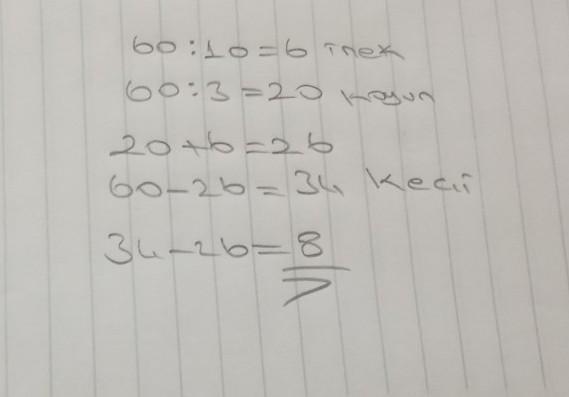 60:10=6 inek
60:3=20 koyun
20+6=26
60-26=34 Keçi
34-26=8